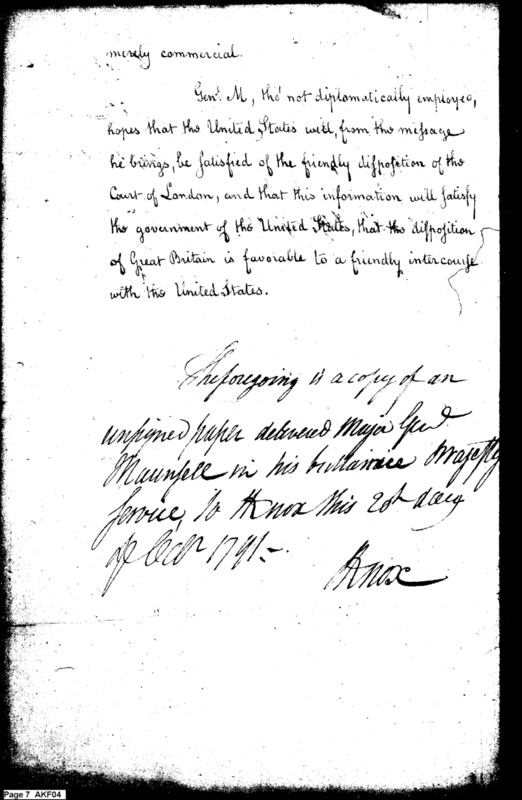 merely commercial.
Genl. M, tho' not diplomatically employed,
hopes that the United States will, from the message
he brings, be satisfied of the friendly disposition of the
Court of London, and that this information will satisfy
the government of the United States, that the disposition
of Great Britain is favorable to a friendly intercourse
with the United States.
The foregoing is a copy of an
unsigned paper delivered Major Genl.
Maunsell in his brittannic Majesty
Service, to H Knox this 20th day
of Octr 1791.
H Knox
Page 7 AKF04